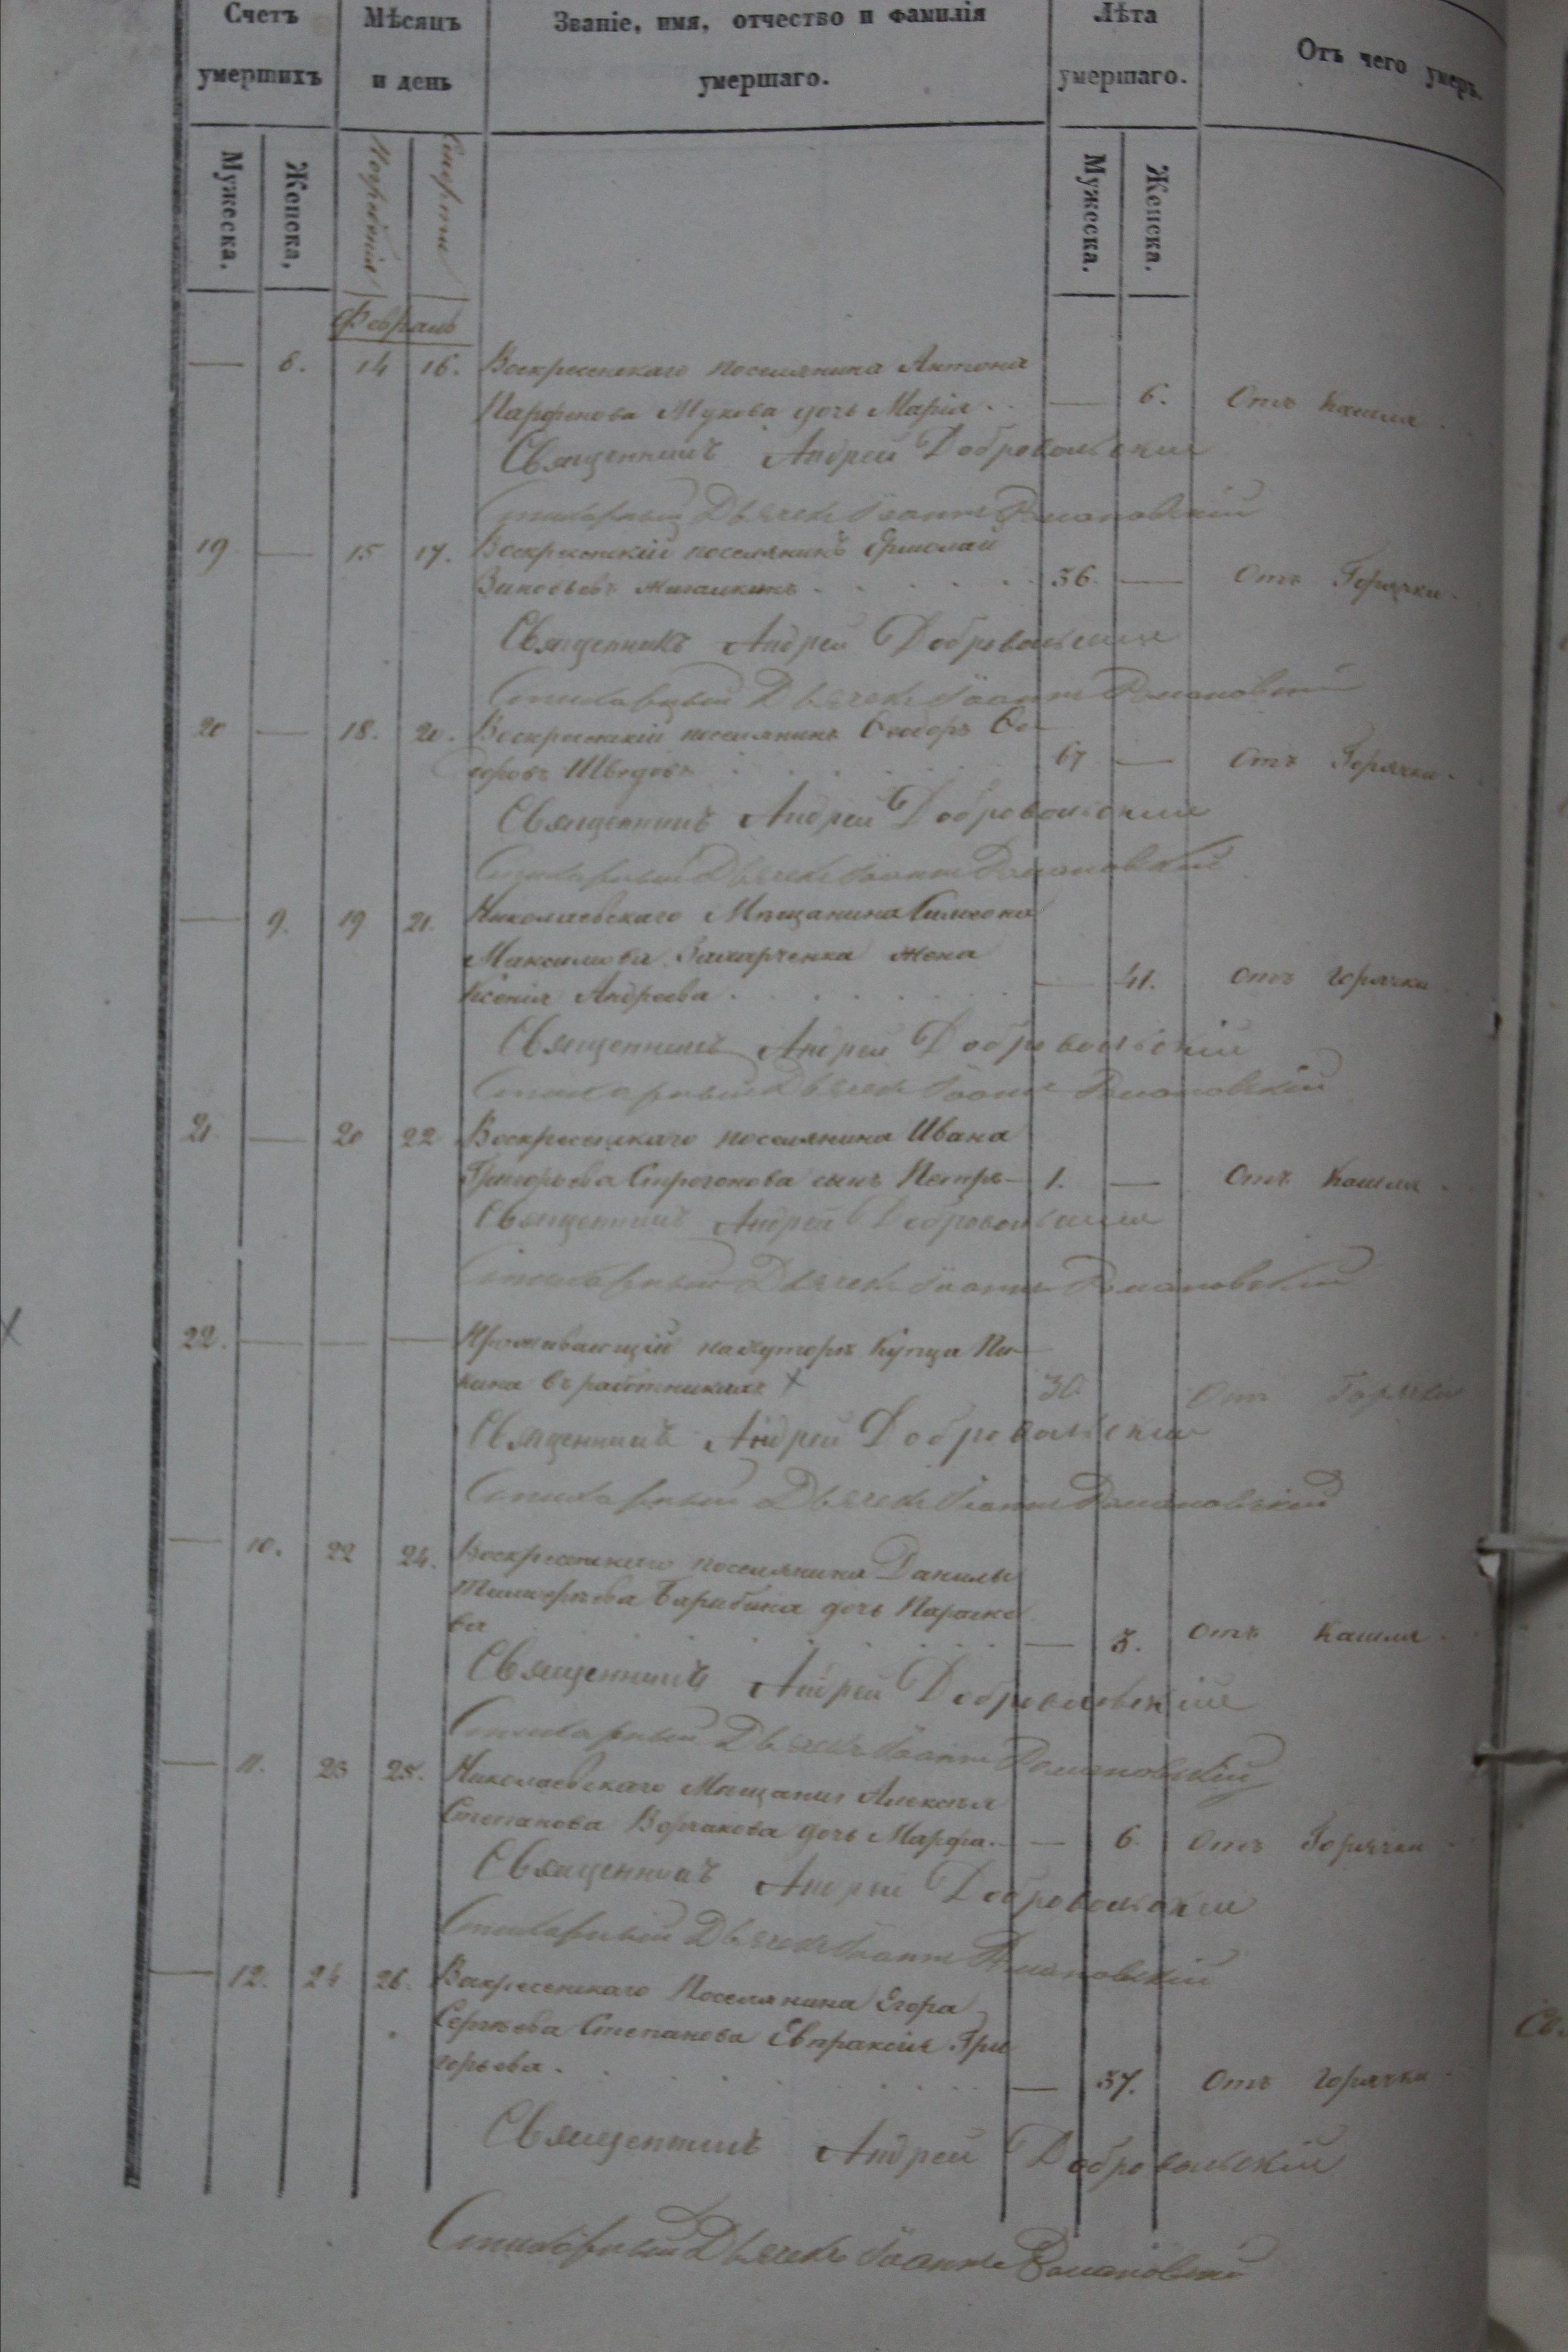 Счетъ умершихъ
Мѣсяцъ и день
Званіе, имя, отчество и фамилія умершаго.
Лѣта умершаго.
Отъ чего умеръ.
Мужеска. Женска, Погребенія Смерти Мужеска. Женска.
Февраль
— 8. 14 16. Воскресенскаго поселянина Антона
Парфенова Мухова дочь Марія . . — 6. Отъ Кашля .
Священникъ Андрей Добровольскій
Стихарный Дьячекъ Іоаннъ Романовскій
19 — 15 17. Воскресенскій поселянинъ Ермолай
Зиновьевъ . . . . . 36. — Отъ Горячки.
Священникъ Андрей Добровольскій
Стихарный Дьячекъ Іоаннъ Романовскій
20 — 18. 20. Воскресенскій поселянинъ Ѳеодоръ Ѳе-
доровъ Шведовъ . . . . . 67 — Отъ Горячки.
Священникъ Андрей Добровольскій
Стихарный Дьячекъ Іоаннъ Романовскій
— 9. 19 21. Николаевскаго Мѣщанина Симеона
Максимова Захарченка жена
Ксенія Андреева . . . . . . — 41. Отъ Горячки
Священникъ Андрей Добровольскій
Стихарный Дьячекъ Іоаннъ Романовскій
21 — 20 22 Воскресенскаго поселянина Ивана
Григорьева Строгонова сынъ Петръ — 1. — Отъ Кашля .
Священникъ Андрей Добровольскій
Стихарный Дьячекъ Іоаннъ Романовскій
22. — — — Проживающій на хуторѣ Купца
въ работникахъ X 30 Отъ Горячки
Священникъ Андрей Добровольскій
Стихарный Дьячекъ Іоаннъ Романовскій
— 10. 22 24. Воскресенскаго поселянина Данилы
дочь Параске
ва . . . . . — 3. Отъ Кашля .
Священникъ Андрей Добровольскій
Стихарный Дьячекъ Іоаннъ Романовскій
— 11. 23 25. Николаевскаго Мѣщанина Алексѣя
Степанова дочь Марфа. — — 6. Отъ Горячки .
Священникъ Андрей Добровольскій
Стихарный Дьячекъ Іоаннъ Романовскій
— 12. 24 26. Воскресенскаго Поселянина Егора
Сергѣева Степанова Евпраксія Гри
горьева . . . . . . — 37. Отъ Горячки .
Священникъ Андрей Добровольскій
Стихарный Дьячекъ Іоаннъ Романовскій